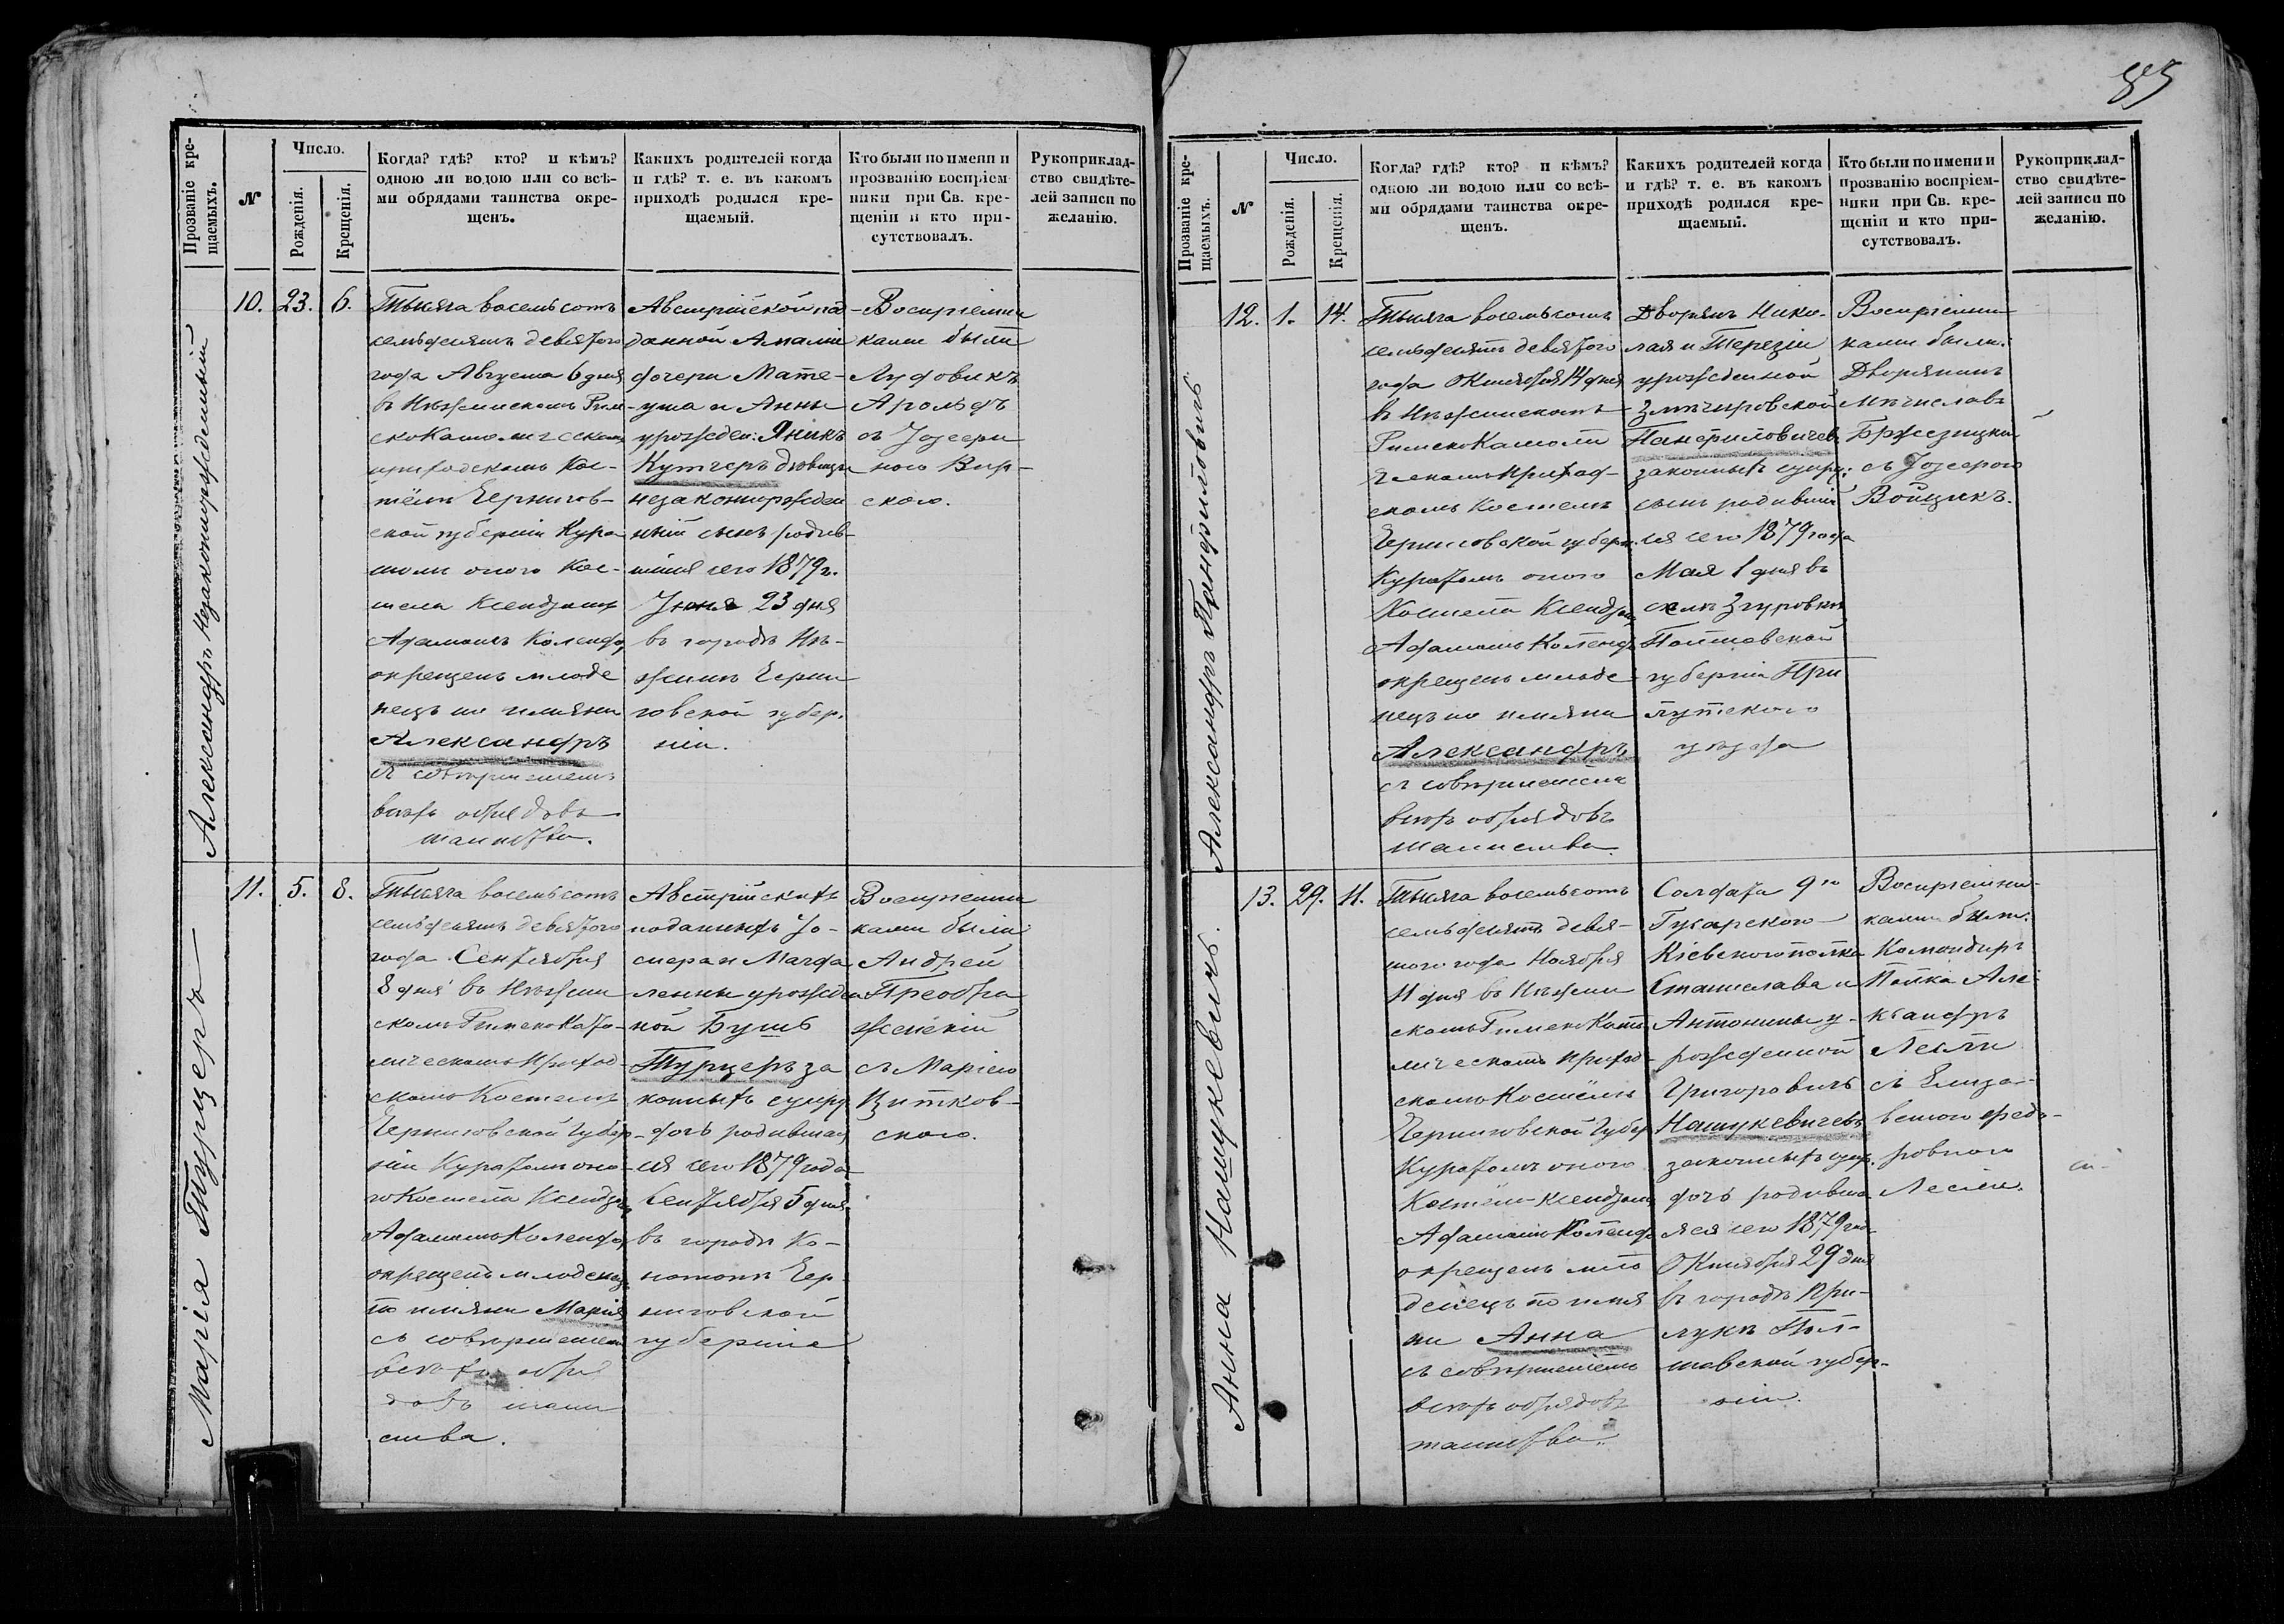 85
Прозваніе кре-
щаемыхъ.
N
Число.
Рожденія.
Крещенія.
Когда? гдѣ? кто? и кѣмъ?
одною ли водою или со всѣ-
ми обрядами таинства окре-
щенъ.
Какихъ родителей когда
и гдѣ? т. е. въ какомъ
приходѣ родился кре-
щаемый.
Кто были по имени и
прозванію воспріем
ники при Св. кре-
щеніи и кто при-
сутствовалъ.
Рукоприклад-
ство свидѣте-
лей записи по
желанію.
Александръ Незаконорожденный
10. 23. 6.
Тысяча восемьсотъ
семьдесятъ девятого
года Августа 6 дня
въ Нѣжинскомъ Рим-
скоКатолическомъ
приходскомъ Кос-
тёлѣ Чернигов-
ской губерніи Кура
томъ оного Кос-
тела Ксендзомъ
Адамомъ Коленд
окрещенъ младе
нецъ по имяни
Александръ
съ совершеніемъ
всѣхъ обрядовъ
таинства.
Австрійской под
данной Амаліи
дочери Мате-
уша и Анны
урожден: Яникъ
Кутчеръ дѣвицы
незаконорожден
ный сынъ родив-
шійся сего 1879 г.
Іюня 23 дня
въ городѣ Нѣ-
жинѣ Черни
говской губер.
ніи.
Воспріемни
ками были
Лудовикъ
Арольдъ
съ Іозефи
ною Вир-
скою.
Марія Турцеръ
11. 5. 8.
Тысяча восемьсотъ
семьдесятъ девятого
года Сентября
8 дня въ Нѣжин
скомъ РимскоКато-
лическомъ Приход-
скомъ Костелѣ
Черниговской Губер-
ніи Куратомъ оно-
го Костела Ксендзомъ
Адамомъ Коленд
окрещенъ младенецъ
по имяни Марія
съ совершеніемъ
всѣхъ обря
довъ таин
ства.
Австрійскихъ
подданныхъ Іо-
сифа и Магда
лены урожден
ной Бушъ
Турцеръ за
конныхъ супру
дочь родившая
ся сего 1879 года
Сентября 5 дня
въ городѣ Ко-
нотопѣ Чер-
ниговской
губерніи
Воспріемни
ками были
Андрей
Преобра
женскій
съ Маріею
Витков-
скою.
Прозваніе кре-
щаемыхъ.
N
Число.
Рожденія.
Крещенія.
Когда? гдѣ? кто? и кѣмъ?
одною ли водою или со всѣ-
ми обрядами таинства окре-
щенъ.
Какихъ родителей когда
и гдѣ? т. е. въ какомъ
приходѣ родился кре-
щаемый.
Кто были по имени и
прозванію воспріем-
ники при Св. кре-
щеніи и кто при-
сутствовалъ.
Рукоприклад-
ство свидѣте-
лей записи по
желанію.
Александръ Панфиловичъ
12. 1. 14.
Тысяча восемьсотъ
семьдесятъ девятого
года Октября 14 дня
въ Нѣжинскомъ
РимскоКатоли
ческомъ Приход-
скомъ Костелѣ
Черниговской губерн.
Куратомъ оного
Костела Ксендзомъ
Адамомъ Коленд
окрещенъ младе
нецъ по имяни
Александръ
съ совершеніемъ
всѣхъ обрядовъ
таинства.
Дворянъ Нико-
лая и Терезіи
урожденной
Панфиловичевъ
законныхъ супру:
сынъ родившій
ся сего 1879 года
Мая 1 дня въ
селѣ Згуровкѣ
Полтавской
губерніи При
лутского
уѣзда
Воспріемни
ками были:
Дворянинъ
Мѣчиславъ
съ Іозефою
Войцикъ.
Анна Нацукевичъ.
13. 29. 11.
Тысяча восемьсотъ
семьдесятъ девя-
того года Ноября
11 дня въ Нѣжин
скомъ РимскоКато
лическомъ приход-
скомъ Костёлѣ
Черниговской Губер
Куратомъ оного
Костёла Ксендзомъ
Адамомъ Коленд
окрещенъ мла
денецъ по имя
ни Анна
съ совершеніемъ
всѣхъ обрядовъ
таинства.
Солдата 9го
Гусарского
Кіевского полка
Станислава и
Антонины у-
рожденной
Григоровичъ
Нацукевичевъ
законныхъ супр.
дочь родивша
яся сего 1879 го
Октября 29 дня
въ городѣ При-
лукѣ Пол-
тавской губер-
ніи.
Воспріемни-
ками были:
Командиръ
Полка Але-
ксандръ
Лесли
съ Елиза-
ветою Федо-
ровною
Лесли.